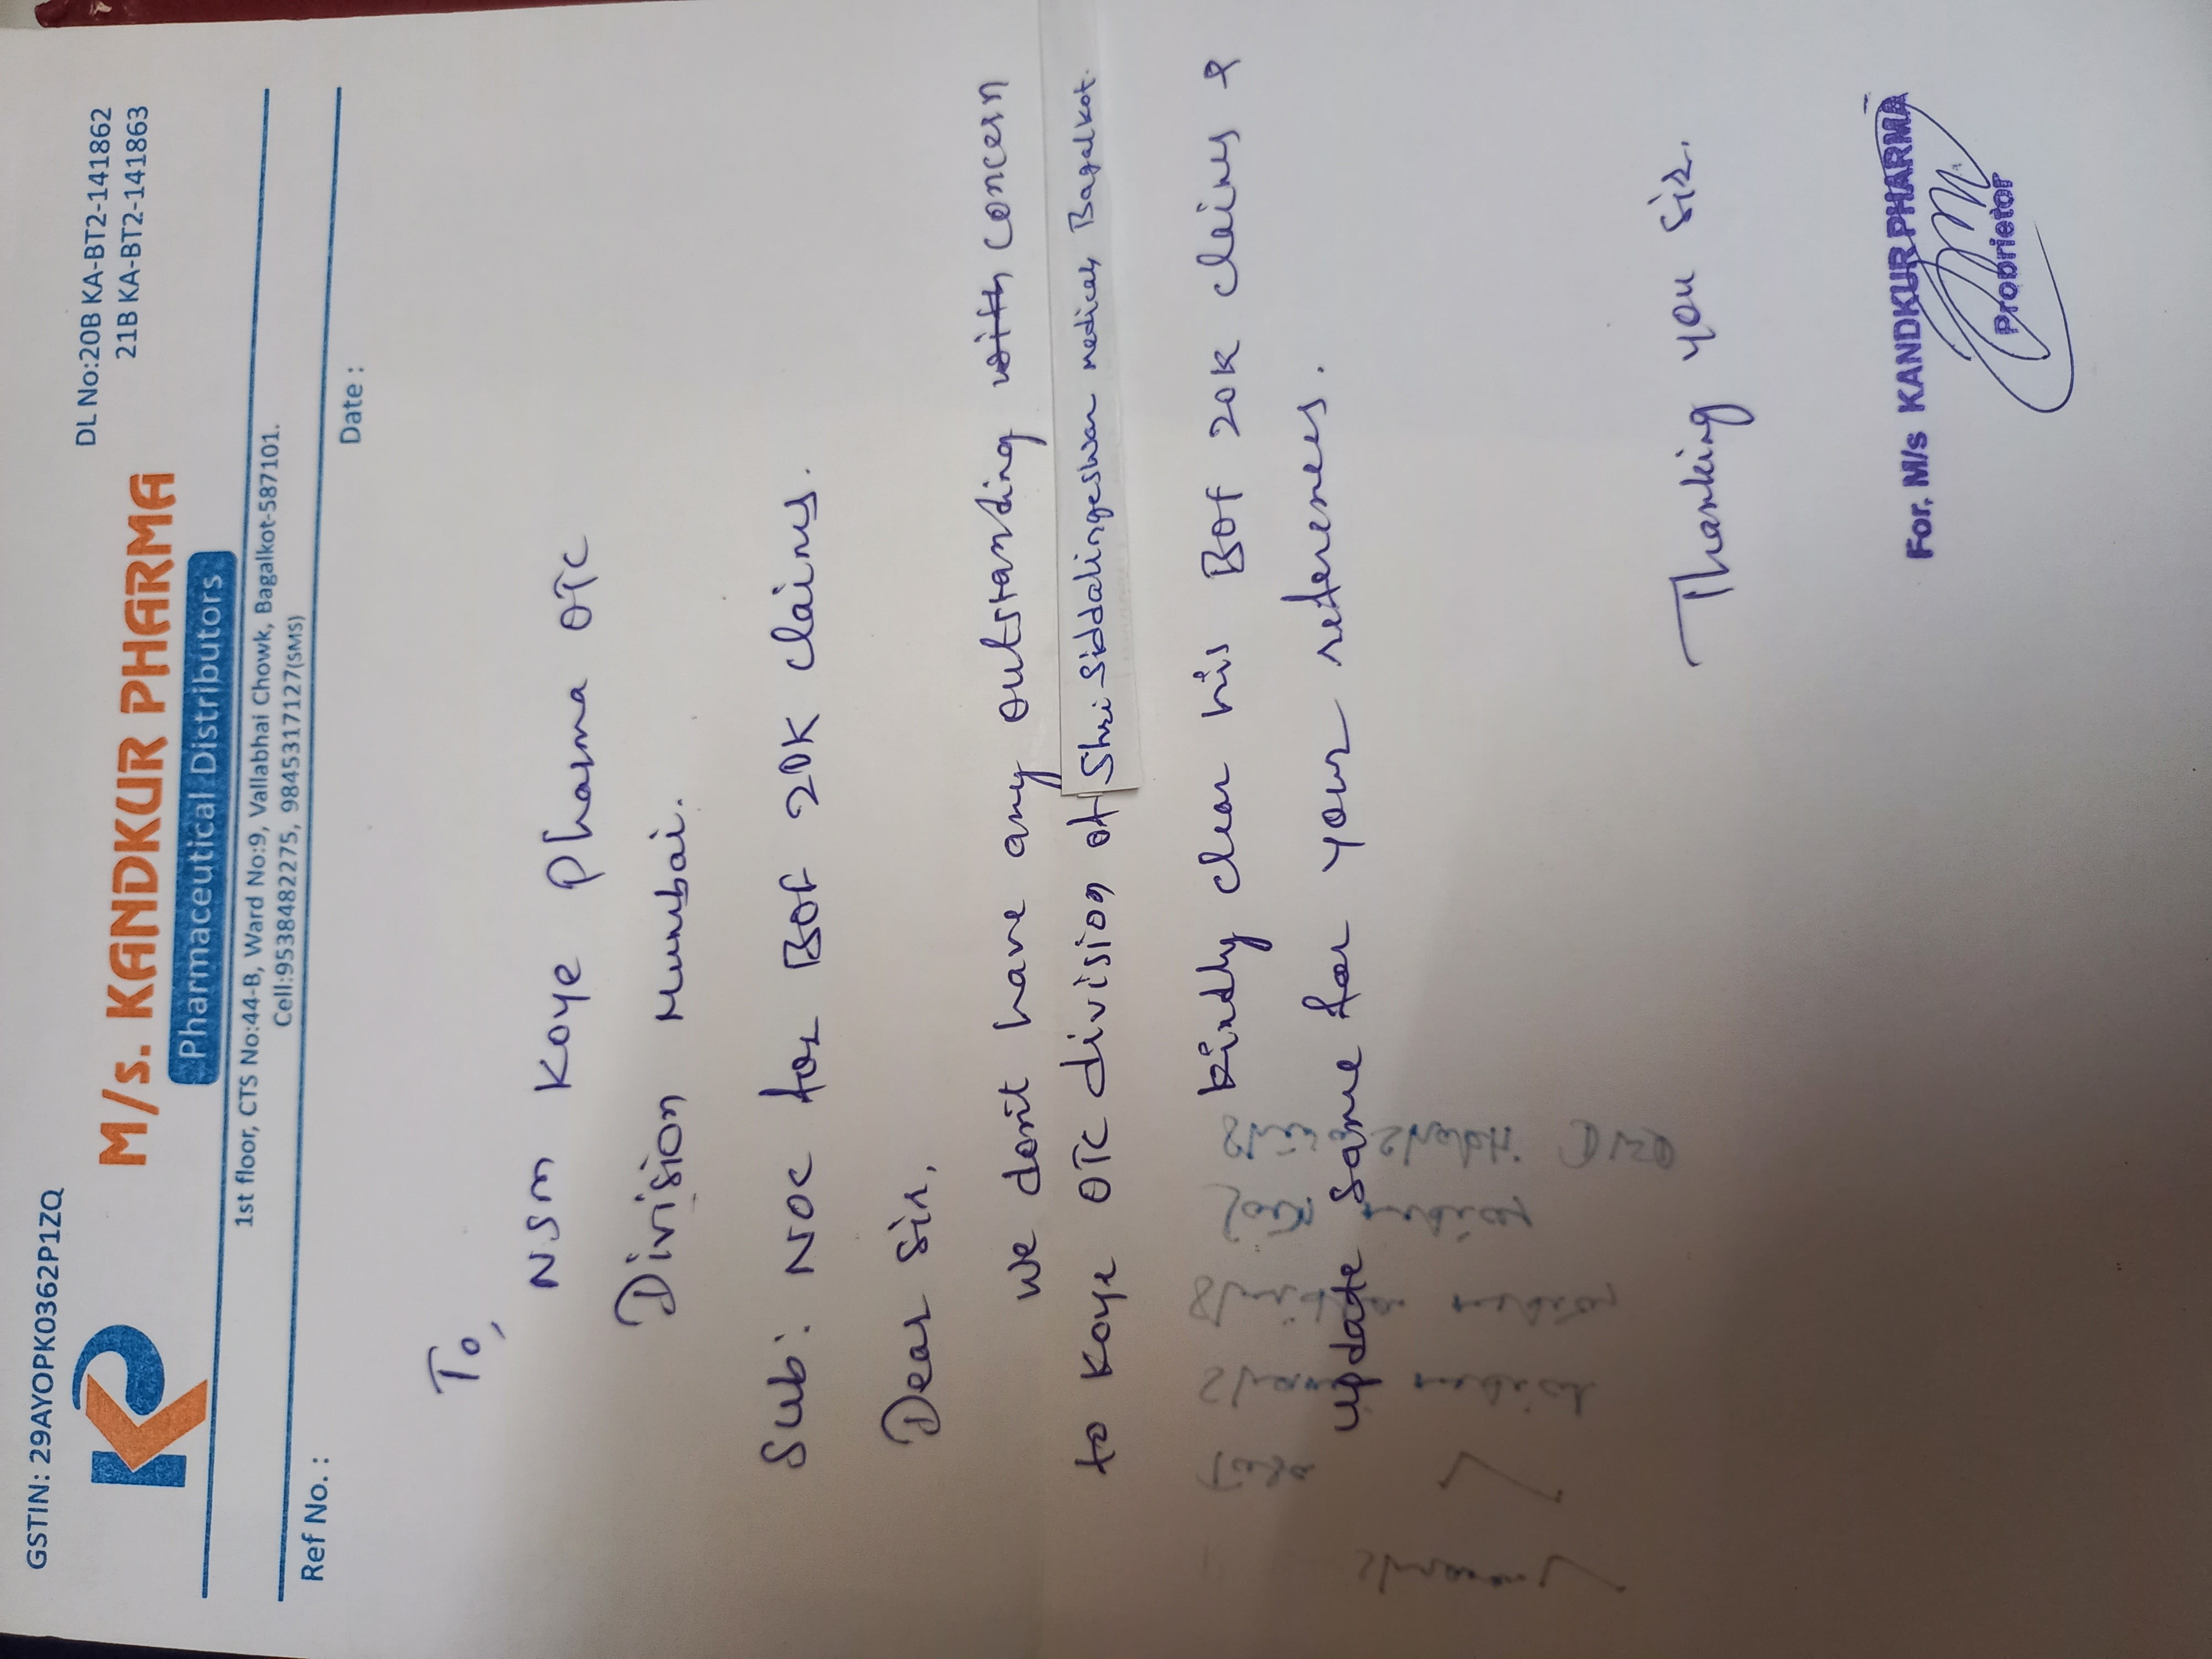 GSTIN: 29AYOPK0362P1ZQ
DL No:20B KA-BT2-141862
21B KA-BT2-141863
M/s. KANDKUR PHARMA
Pharmaceutical Distributors
1st floor, CTS No:44-B, Ward No:9, Vallabhai Chowk, Bagalkot-587101.
Cell:9538482275, 9845317127(SMS)
Ref No. :
Date :
To,
NSM Koye Pharma OTC
Division Mumbai.
Sub: NOC for BOF 20K claims.
Dear Sir,
We don't have any outstanding with concern
to Koye OTC division of Shri Siddalingeshwar Medicals Bagalkot.
Kindly clear his BOF 20K claims &
update same for your referenes.
Thanking you Sir.
For, M/s KANDKUR PHARMA
Proprietor